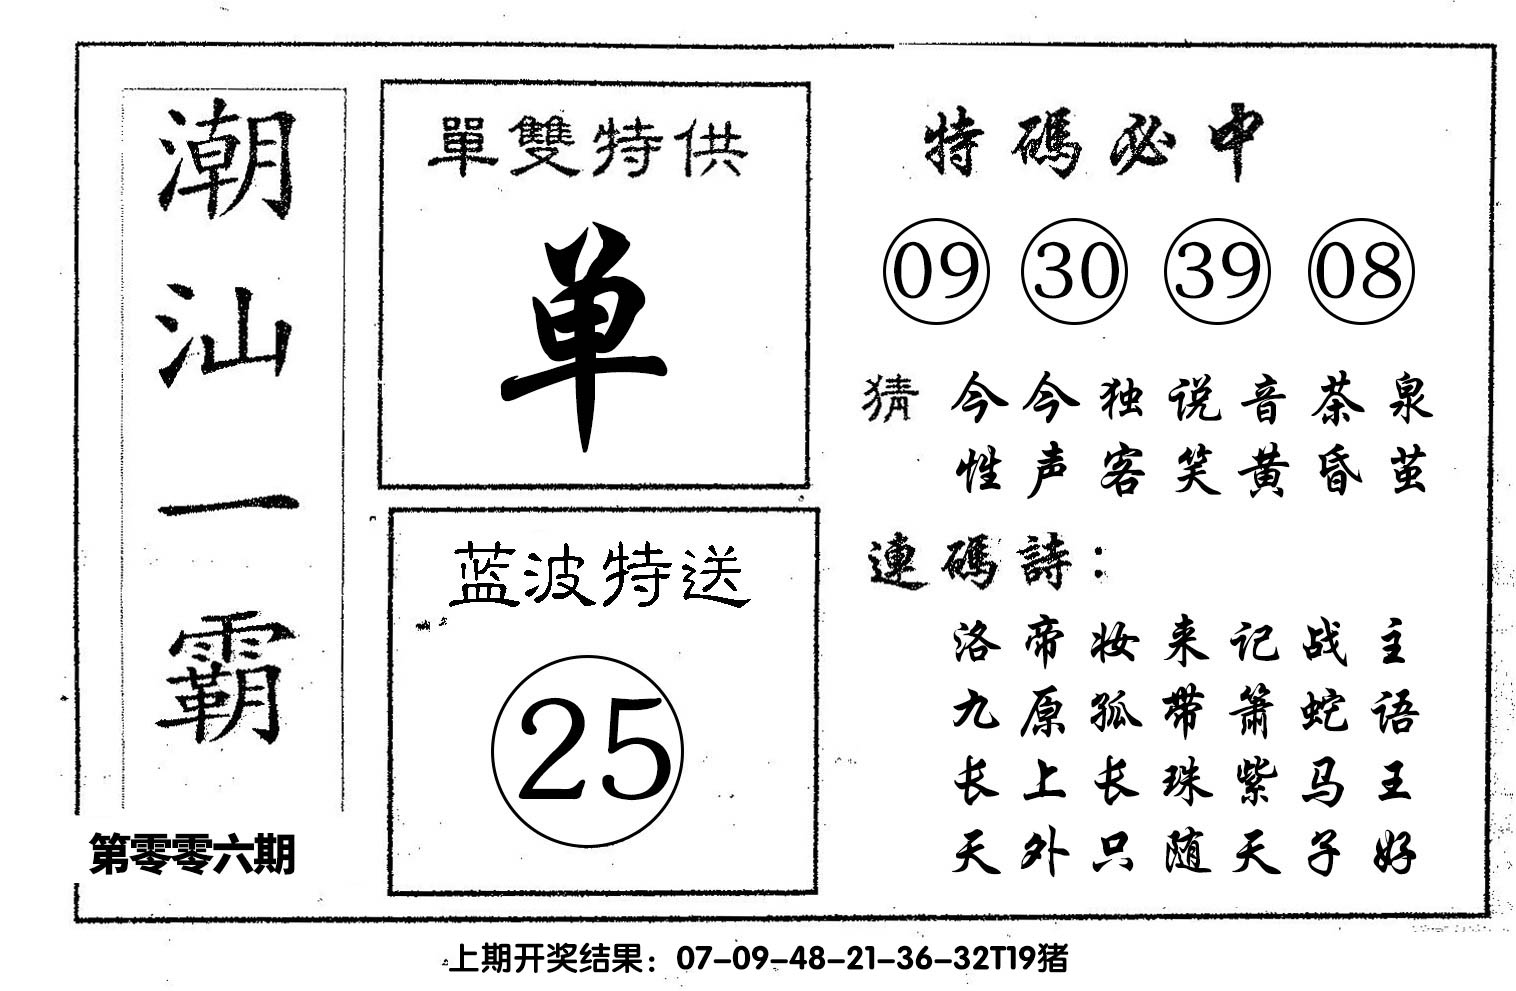 潮汕一霸
第零零六期
單雙特供
单
蓝波特送
25
特碼必中
09 30 39 08
猜 今今独说音茶泉
性声客笑黄昏茧
連碼詩：
洛帝妆来记战主
九原孤带箫蛇语
长上长珠紫马王
天外只随天子好
上期开奖结果：07-09-48-21-36-32T19猪